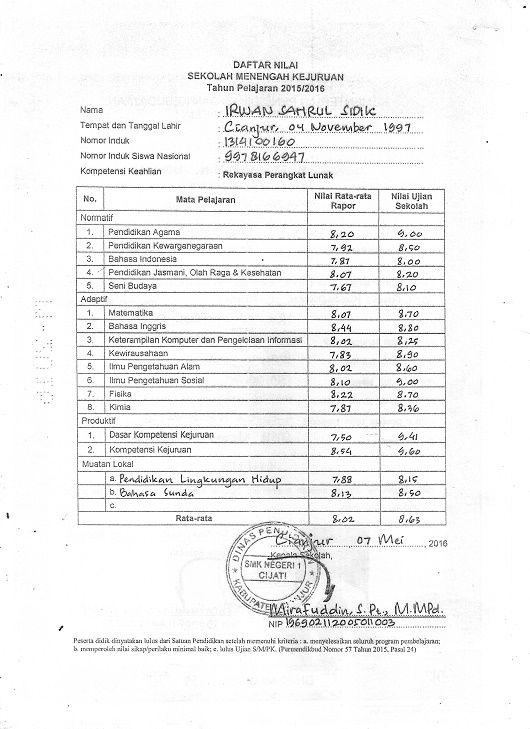 DAFTAR NILAI
SEKOLAH MENENGAH KEJURUAN
Tahun Pelajaran 2015/2016
Nama : IRWAN SAHRUL SIDIK
Tempat dan Tanggal Lahir : Cianjur, 04 November 1997
Nomor Induk : 131410160
Nomor Induk Siswa Nasional : 9978166947
Kompetensi Keahlian : Rekayasa Perangkat Lunak
No. Mata Pelajaran Nilai Rata-rata Rapor Nilai Ujian Sekolah
Normatif
1. Pendidikan Agama 8,20 9,00
2. Pendidikan Kewarganegaraan 7,92 8,50
3. Bahasa Indonesia 7,87 8,00
4. Pendidikan Jasmani, Olah Raga & Kesehatan 8,07 8,20
5. Seni Budaya 7,67 8,10
Adaptif
1. Matematika 8,07 8,70
2. Bahasa Inggris 8,44 8,80
3. Keterampilan Komputer dan Pengelolaan Informasi 8,02 8,25
4. Kewirausahaan 7,83 8,90
5. Ilmu Pengetahuan Alam 8,02 8,60
6. Ilmu Pengetahuan Sosial 8,10 9,00
7. Fisika 8,22 8,70
8. Kimia 7,87 8,36
Produktif
1. Dasar Kompetensi Kejuruan 7,50 9,41
2. Kompetensi Kejuruan 8,54 9,60
Muatan Lokal
a. Pendidikan Lingkungan Hidup 7,88 8,15
b. Bahasa Sunda 8,13 8,50
c.
Rata-rata 8,02 8,63
Cianjur 07 Mei , 2016
Kepala Sekolah,
DINAS
SMK NEGERI 1
CIJATI
KABUPATEN
Mirafuddin, S.Pt., M.MPd.
NIP 196902112005011003
Peserta didik dinyatakan lulus dari Satuan Pendidikan setelah memenuhi kriteria : a. menyelesaikan seluruh program pembelajaran;
b. memperoleh nilai sikap/perilaku minimal baik; c. lulus Ujian S/M/PK. (Permendikbud Nomor 57 Tahun 2015, Pasal 24)